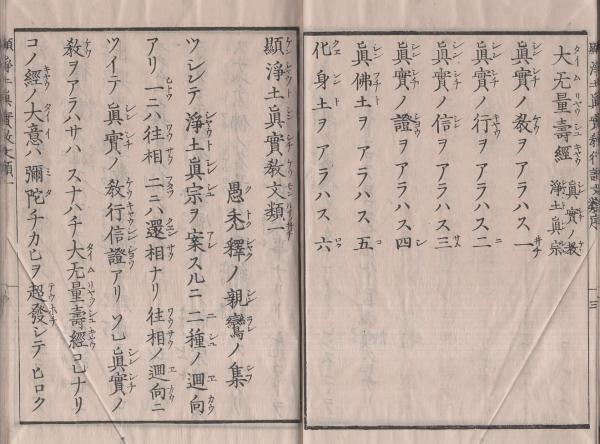 大无量壽經 眞實ノ教 淨土眞宗
眞實ノ教ヲアラハス 一
眞實ノ行ヲアラハス 二
眞實ノ信ヲアラハス 三
眞實ノ證ヲアラハス 四
眞佛土ヲアラハス 五
化身土ヲアラハス 六
顯淨土眞實教文類一
愚禿釋ノ親鸞ノ集
ツヽシンテ淨土眞宗ヲ案スルニ二種ノ廻向
アリ一ニハ往相二ニハ還相ナリ往相ノ廻向ニ
ツイテ眞實ノ教行信證アリソレ眞實ノ
教ヲアラハサハスナハチ大无量壽經コレナリ
コノ經ノ大意ハ彌陀チカヒヲ超發シテヒロク